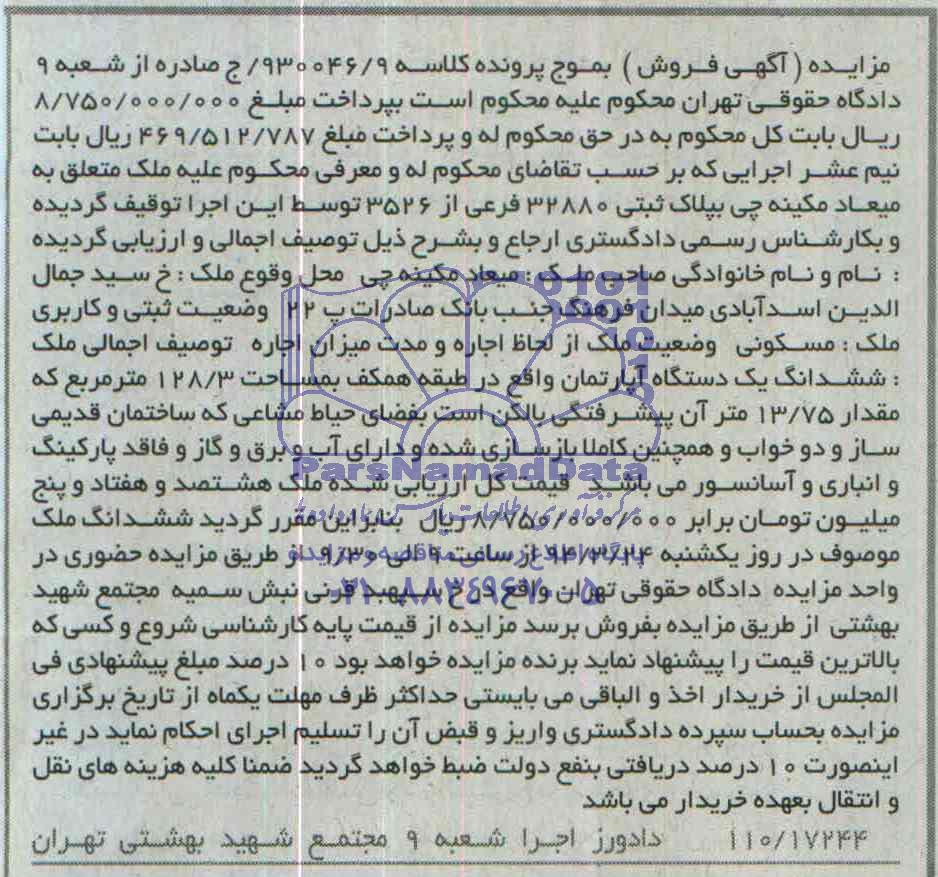 مزایده (آگهی فروش) بموج پرونده کلاسه ۹۳۰۰۴۶/۹/ ج صادره از شعبه ۹
دادگاه حقوقی تهران محکوم علیه محکوم است بپرداخت مبلغ ۸/۷۵۰/۰۰۰/۰۰۰
ریال بابت کل محکوم به در حق محکوم له و پرداخت مبلغ ۴۶۹/۵۱۲/۷۸۷ ریال بابت
نیم عشر اجرایی که بر حسب تقاضای محکوم له و معرفی محکوم علیه ملک متعلق به
میعاد مکینه چی بپلاک ثبتی ۳۲۸۸۰ فرعی از ۳۵۲۶ توسط این اجرا توقیف گردیده
و بکارشناس رسمی دادگستری ارجاع و بشرح ذیل توصیف اجمالی و ارزیابی گردیده
: نام و نام خانوادگی صاحب ملک : میعاد مکینه چی محل وقوع ملک : خ سید جمال
الدین اسدآبادی میدان فرهنگ جنب بانک صادرات پ ۲۲ وضعیت ثبتی و کاربری
ملک : مسکونی وضعیت ملک از لحاظ اجاره و مدت میزان اجاره توصیف اجمالی ملک
: ششدانگ یک دستگاه آپارتمان واقع در طبقه همکف بمساحت ۱۲۸/۳ مترمربع که
مقدار ۱۳/۷۵ متر آن پیشرفتگی بالکن است بفضای حیاط مشاعی که ساختمان قدیمی
ساز و دو خواب و همچنین کاملا بازسازی شده و دارای آب و برق و گاز و فاقد پارکینگ
و انباری و آسانسور می باشد قیمت کل ارزیابی شده ملک هشتصد و هفتاد و پنج
میلیون تومان برابر ۸/۷۵۰/۰۰۰/۰۰۰ ریال بنابراین مقرر گردید ششدانگ ملک
موصوف در روز یکشنبه ۹۴/۳/۲۴ از ساعت ۹ الی ۹/۳۰ از طریق مزایده حضوری در
واحد مزایده دادگاه حقوقی تهران واقع در خ سپهبد قرنی نبش سمیه مجتمع شهید
بهشتی از طریق مزایده بفروش برسد مزایده از قیمت پایه کارشناسی شروع و کسی که
بالاترین قیمت را پیشنهاد نماید برنده مزایده خواهد بود ۱۰ درصد مبلغ پیشنهادی فی
المجلس از خریدار اخذ و الباقی می بایستی حداکثر ظرف مهلت یکماه از تاریخ برگزاری
مزایده بحساب سپرده دادگستری واریز و قبض آن را تسلیم اجرای احکام نماید در غیر
اینصورت ۱۰ درصد دریافتی بنفع دولت ضبط خواهد گردید ضمنا کلیه هزینه های نقل
و انتقال بعهده خریدار می باشد
۱۱۰/۱۷۲۴۴ دادورز اجرا شعبه ۹ مجتمع شهید بهشتی تهران
ParsNamadData
۰۲۱-۸۸۳۴۹۶۷۰-۵